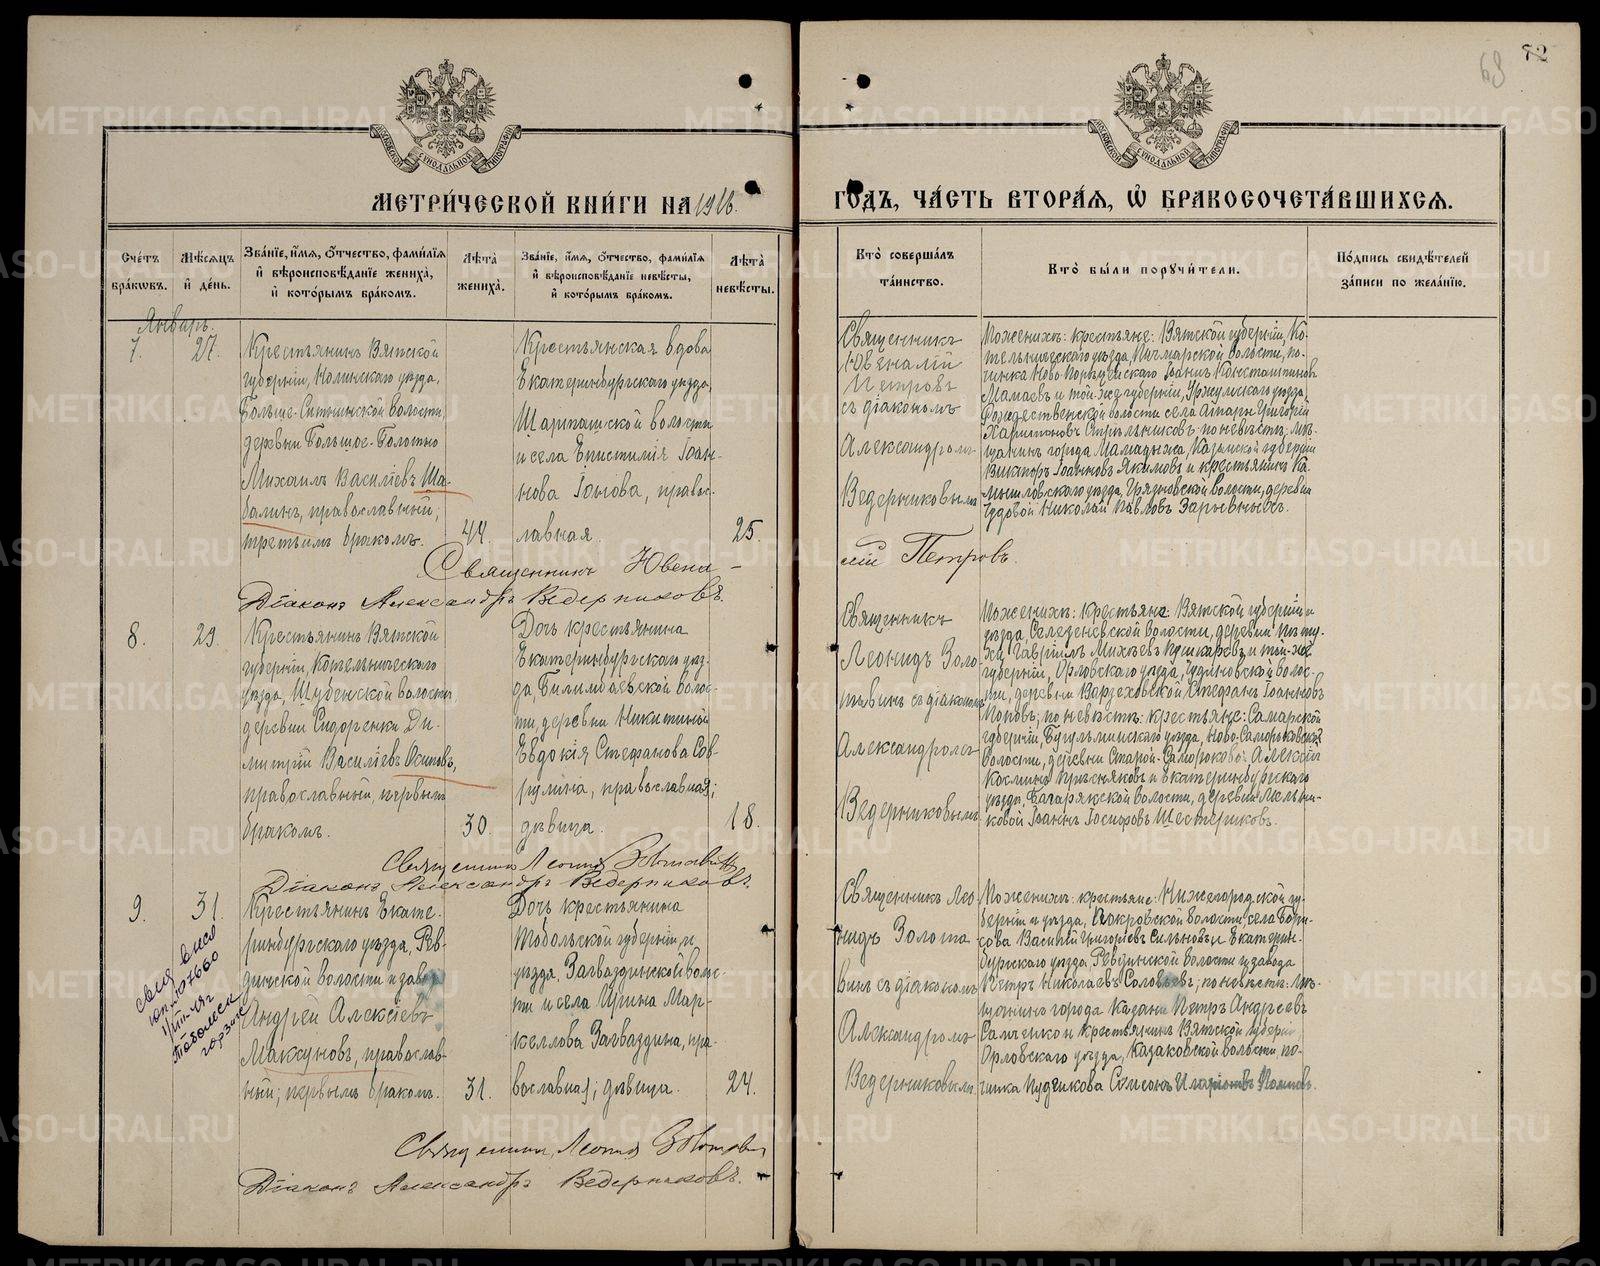 68
72
МЕТРИ́ЧЕСКОЙ КНИ́ГИ НА 1916
ГОДЪ, ЧА́СТЬ ВТОРА́Я, Ѡ БРАКОСОЧЕТА́ВШИХСЯ.
Сче́тъ бра́ковъ.
Мѣ́сяцъ и́ де́нь.
Зва́нїе, и́мя, ѻ́тчество, фами́лїя и́ вѣроисповѣ́данїе жениха̀, и́ кото́рымъ бра́комъ.
Лѣ́та̀ жениха̀.
Зва́нїе, и́мя, ѻ́тчество, фами́лїя и́ вѣроисповѣ́данїе невѣ́сты, и́ кото́рымъ бра́комъ.
Лѣ́та̀ невѣ́сты.
Кто̀ соверша́лъ та́инство.
Кто̀ бы́ли поручи́тели.
По́дпись свидѣ́телей за́писи по жела́нїю.
Январь.
7.
27.
Крестьянинъ Вятской
губернiи, Нолинскаго уѣзда,
Больше-Ситминской волости,
деревни Большое-Болотно
Михаилъ Василiевъ Ша-
балинъ, православный;
третьимъ бракомъ.
44.
Крестьянская вдова
Екатеринбургскаго уѣзда,
Шарташской волости
и села Епистимiя Iоан-
нова Iонова, правос-
лавная.
25.
Священникъ
Ювеналiй
Петровъ
съ дiакономъ
Александромъ
Ведерниковымъ
По женихѣ: крестьяне: Вятской губернiи, Ко-
тельническаго уѣзда, Пичмарской волости, по-
Iоаннъ Константиновъ
Мамаевъ и той же губернiи, Уржумскаго уѣзда,
Рождественской волости села Григорiй
Харитоновъ Стрѣльниковъ; по невѣстѣ: мѣ-
щанинъ города Мамадыжа, Казанской губернiи
Викторъ Iоанновъ Якимовъ и крестьянинъ Ка-
мышловскаго уѣзда, Грязновской волости, деревни
Николай Павловъ Зарывныхъ.
Священникъ Ювена-
лiй Петровъ.
Дiаконъ Александръ Ведерниковъ.
8.
29.
Крестьянинъ Вятской
губернiи, Котельническаго
уѣзда, Шубенской волости
деревни Сидоренки Ди-
митрiй Василiевъ Осиповъ,
православный, первымъ
бракомъ.
30.
Дочь крестьянина
Екатеринбургскаго уѣз-
да, Билимбаевской волос-
ти, деревни Никитиной
Евдокiя Стефанова Сов-
рулина, православная;
дѣвица.
18.
Священникъ
Леонидъ Золо-
тавинъ съ дiакономъ
Александромъ
Ведерниковымъ
По женихѣ: крестьяне: Вятской губернiи и
уѣзда, Селезеневской волости, деревни
Гаврiилъ Михеевъ Пушкаревъ и той-же
губернiи, Орловскаго уѣзда, Чудиновской волос-
ти, деревни Варзеховской Стефанъ Iоанновъ
Поповъ; по невѣстѣ: крестьяне: Самарской
губернiи, Бугульминскаго уѣзда,
волости, деревни Старой-Саморо­ковой Алексiй
Косминъ Прѣсняковъ и Екатеринбургскаго
уѣзда, Багарякской волости, деревни Мельни-
ковой Iоаннъ Iосифовъ Шестериковъ.
Священникъ Леонидъ Золотавинъ
Дiаконъ Александръ Ведерниковъ.
9.
31.
Крестьянинъ Екате-
ринбургскаго уѣзда, Рев-
динской волости и завода
Андрей Алексiевъ
Максуновъ, православ-
ный; первымъ бракомъ.
31.
Дочь крестьянина
Тобольской губернiи и
уѣзда, Загваздинской волос-
ти и села Ирина Мар-
келлова Загваздина, пра-
вославная; дѣвица.
24.
Священникъ Лео-
нидъ Золота-
винъ съ дiакономъ
Александромъ
Ведерниковымъ
По женихѣ: крестьяне: Нижегородской гу-
бернiи и уѣзда, Покровской волости села Бори-
сова Василiй Григорiевъ Сильновъ и Екатерин-
бургскаго уѣзда Ревдинской волости и завода
Петръ Николаевъ Соловьевъ; по невѣстѣ: мѣ-
щанинъ города Казани Петръ Андреевъ
Самченко и крестьянинъ Вятской губернiи
Орловскаго уѣзда, Казаковской волости, по-
чинка Пудчикова Симеонъ
Священникъ Леонидъ Золотавин
Дiаконъ Александръ Ведерниковъ.